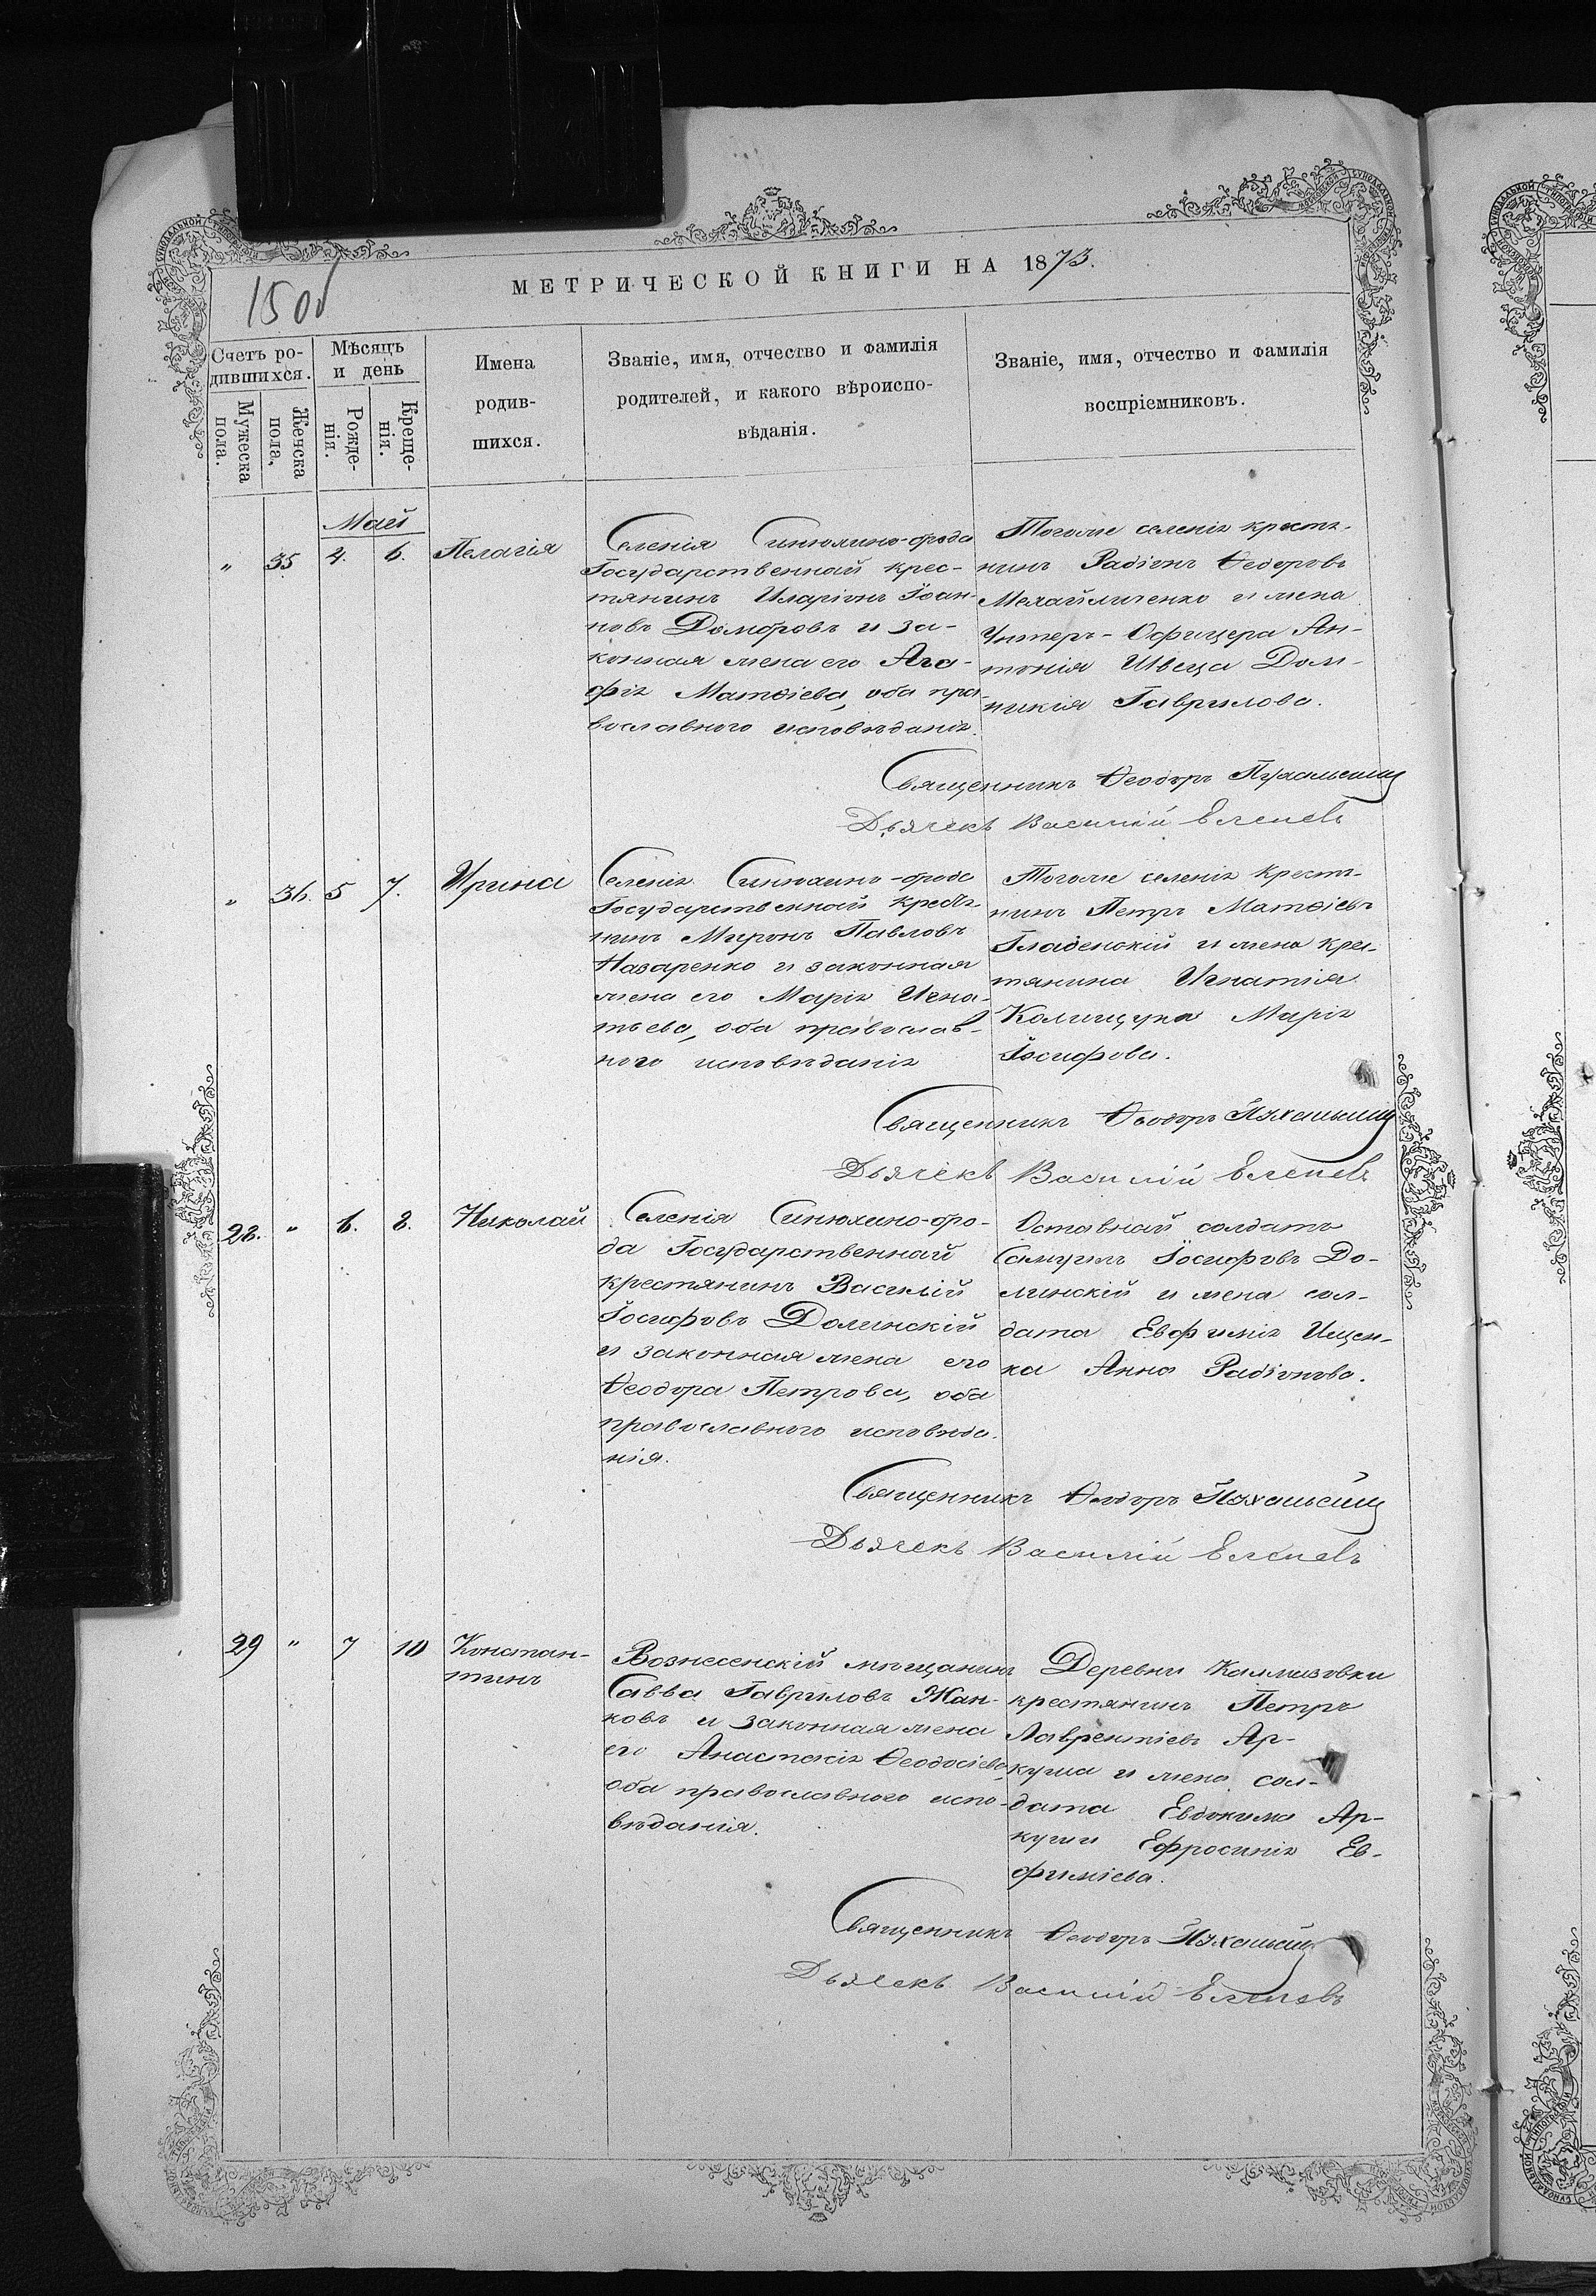 МЕТРИЧЕСКОЙ КНИГИ НА 1873.
150б
Счетъ ро-
дившихся.
Мужеска
пола.
Женска
пола,
Мѣсяцъ
и день
Рожде-
нія.
Креще-
нія.
Имена
родив-
шихся.
Званіе, имя, отчество и фамилія
родителей, и какого вѣроиспо-
вѣданія.
Званіе, имя, отчество и фамилія
воспріемниковъ.
Май
" 35 4. 6. Пелагія
Селенія Синюхино-брода
Государственный крес-
тянинъ Иларіонъ Іоан-
новъ Домбровъ и за-
конная жена его Ага-
фія Матѳіева, оба пра-
вославного исповѣданія.
Тогоже селенія крестя-
нинъ Радіонъ Ѳедоровъ
Михайличенко и жена
Унтеръ-Офицера Ан-
тонія Швеца Дом-
никія Гаврилова.
Священникъ Ѳеодоръ
Дьячекъ Василій
" 36. 5 7. Ирина
Селенія Синюхино-брода
Государственный крестя-
нинъ Миронъ Павловъ
Назаренко и законная
жена его Марія Игна-
тьева, оба православ-
ного исповѣданія
Тогоже селенія крестя-
нинъ Петръ Матѳіевъ
Гладенскій и жена крес-
тянина Игнатія
Колищука Марія
Іосифова.
Священникъ Ѳеодоръ
Дьячекъ Василій
28. " 6. 8. Николай
Селенія Синюхино-бро-
да Государственный
крестянинъ Василій
Іосифовъ Долинскій
и законная жена его
Ѳеодора Петрова, оба
православного исповѣда-
нія.
Отставный солдатъ
Самуилъ Іосифовъ До-
линскій и жена сол-
дата Евфимія Ищен-
ка Анна Радіонова.
Священникъ Ѳеодоръ
Дьячекъ Василій
29 " 7 10 Констан-
тинъ
Вознесенскій мѣщанинъ
Савва Гавриловъ Жан-
ковъ и законная жена
его Анастасія Ѳеодосіева,
оба православного испо-
вѣданія.
Деревни Калмазовки
крестянинъ Петръ
Лаврентіевъ Ар-
куша и жена сол-
дата Евдокима Ар-
куши Ефросинія Ев-
фиміева.
Священникъ Ѳеодоръ
Дьячекъ Василій